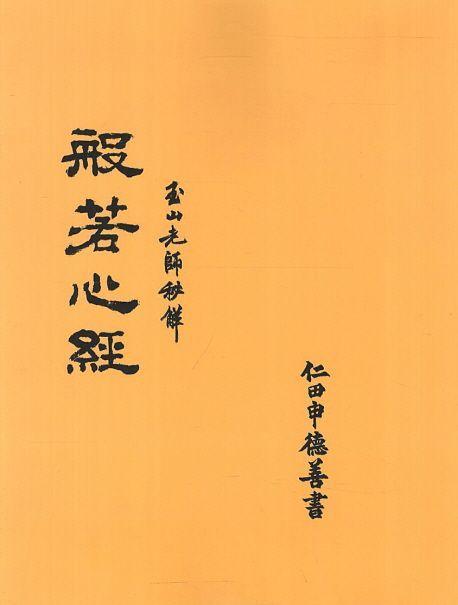 般若心經
玉山光師秘觧
仁田申德善書